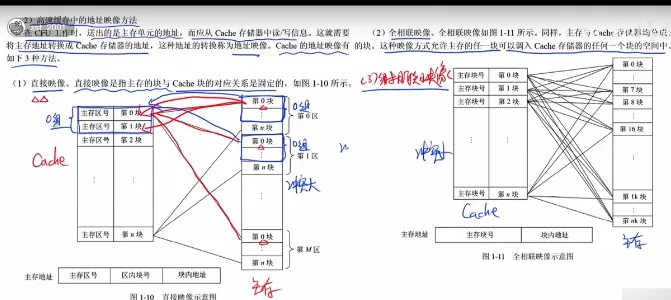 2）高速缓存中的地址映像方法
在CPU工作时，送出的是主存单元的地址，而应从Cache存储器中读/写信息。这就需要
将主存地址转换成Cache存储器的地址，这种地址的转换称为地址映像。Cache的地址映像有
如下3种方法。
（1）直接映像。直接映像是指主存的块与Cache块的对应关系是固定的，如图1-10所示。
0组
Cache
主存区号 第0块
主存区号 第1块
主存区号 第2块
主存区号 第n块
第0块
第n块
第0区
0组
第0块
第n块
第1区
0组
冲突大
第0块
第n块
第M区
主存
主存地址 主存区号 区内块号 块内地址
图1-10 直接映像示意图
（2）全相联映像。全相联映像如图1-11所示。同样，主存与Cache存储器均分成
的块。这种映像方式允许主存的任一块可以调入Cache存储器的任何一个块的空间中。
(3)组相联映像
主存块号 第0块
主存块号 第1块
主存块号 第2块
主存块号 第n块
冲突小
Cache
第0块
第1块
第8块
第16块
第1k块
第nk块
主存
主存地址 主存块号 块内地址
图1-11 全相联映像示意图